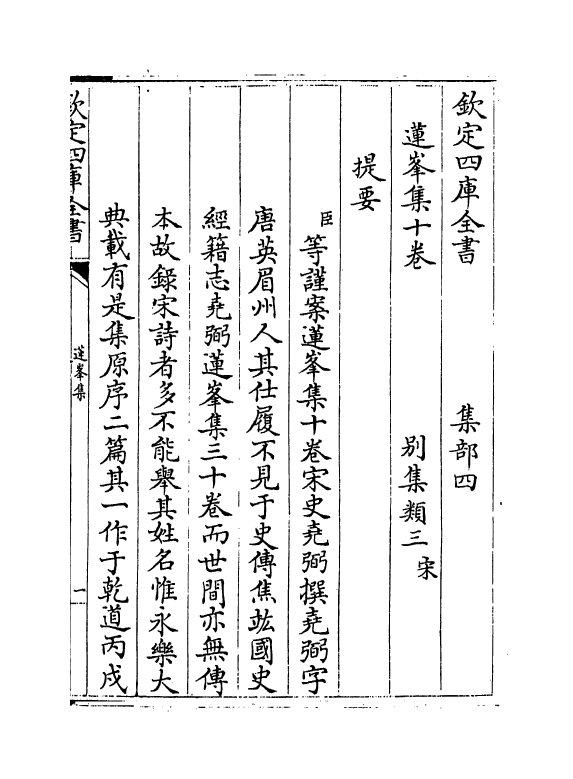 欽定四庫全書　集部四
蓮峯集十卷　别集類三宋
提要
臣等謹案蓮峯集十卷宋史堯弼撰堯弼字
唐英眉州人其仕履不見于史傳焦竑國史
經籍志堯弼蓮峯集三十卷而世間亦無傳
本故錄宋詩者多不能舉其姓名惟永樂大
典載有是集原序二篇其一作于乾道丙戌
欽定四庫全書
蓮峯集
一